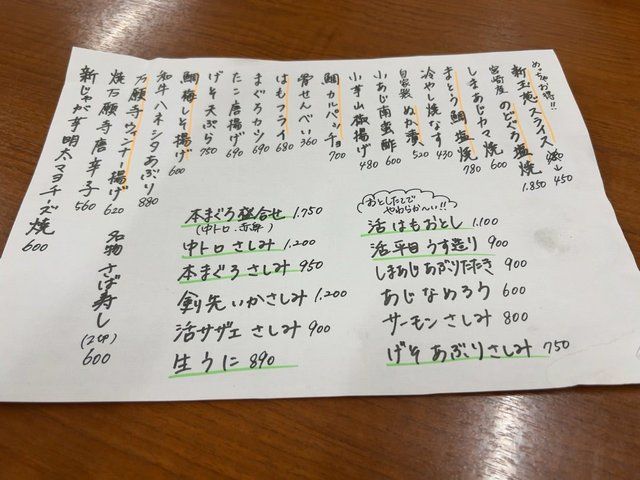 めっちゃお得!!
新玉葱スライス 450
宮崎産 のどぐろ塩焼 1.850
しまあじカマ焼 600
まとう鯛塩焼 780
冷やし焼なす 430
自家製 ぬか漬 520
小あじ南蛮酢 600
小芋山椒揚げ 480
鯛カルパッチョ 700
骨せんべい 360
はもフライ 680
まぐろカツ 690
たこ唐揚げ 690
げそ天ぷら 750
鯛梅しそ揚げ 600
和牛ハネシタあぶり 880
万願寺ウィンナー揚げ 620
焼万願寺唐辛子 560
新じゃが芋明太マヨチーズ焼 600
名物 さば寿し (2コ) 600
本まぐろ盛合せ 1.750
(中トロ.赤身)
中トロ さしみ 1.200
本まぐろ さしみ 950
剣先いかさしみ 1.200
活サザエ さしみ 900
生うに 890
おとしたてで
やわらか〜い!!
活 はもおとし 1.100
活平目 うす造り 900
しまあじあぶりたたき 900
あじなめろう 600
サーモンさしみ 800
げそ あぶりさしみ 750